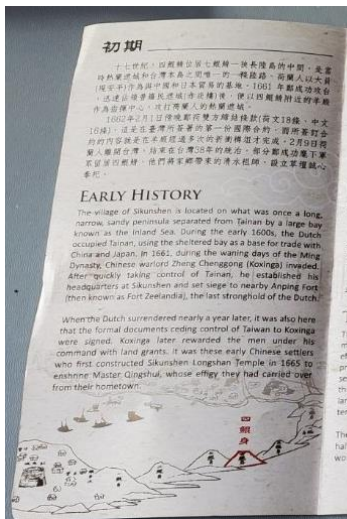 初期
十七世紀，四鯤鯓位居七鯤鯓一狹長陸島的中間，是當
時熱蘭遮城和台灣本島之間唯一的一條陸路。荷蘭人以大員
(現安平)作為與中國和日本貿易的基地。1661年鄭成功攻台
作為指揮中心，攻打荷蘭人的熱蘭遮城。
1662年2月1日傍晚鄭荷雙方締結條款(荷文18條、中文
16條)，這是在臺灣所簽署的第一份國際合約，
約的內容就是在
蘭人離開台灣，結束在台灣38年的統治。部分鄭成功麾下軍
眾留居四鯤鯓，他們將家鄉帶來的清水祖師，設立草壇誠心
奉祀。
EARLY HISTORY
The village of Sikunshen is located on what was once a long,
narrow, sandy peninsula separated from Tainan by a large bay
known as the Inland Sea. During the early 1600s, the Dutch
occupied Tainan, using the sheltered bay as a base for trade with
China and Japan. In 1661, during the waning days of the Ming
Dynasty, Chinese warlord Zheng Chenggong (Koxinga) invaded.
After quickly taking control of Tainan, he established his
headquarters at Sikunshen and set siege to nearby Anping Fort
(then known as Fort Zeelandia), the last stronghold of the Dutch.
When the Dutch surrendered nearly a year later, it was also here
that the formal documents ceding control of Taiwan to Koxinga
were signed. Koxinga later rewarded the men under his
command with land grants. It was these early Chinese settlers
who first constructed Sikunshen Longshan Temple in 1665 to
enshrine Master Qingshui, whose effigy they had carried over
from their hometown.
四鯤身